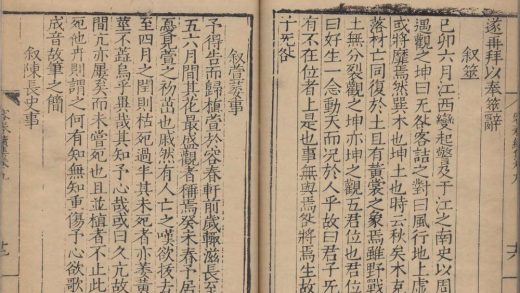 遂再拜以奉筮辭
叙筮
己卯六月江西變起警及于江之南史以周
遇觀之坤曰无咎客詰之對曰風行地上虛
或將靡焉然巽木也坤土也時云秋矣木克
落材亡同復於土且有黃裳之象焉雖野戰
土無分裂觀之坤亦坤之觀五君位也君位
曰好生一念動天而況於人乎故曰君子无
有不在位者上是也事無輿焉咎將焉生故
十无咎
叙萱葵事
予得告而歸植萱於容春軒前歲輙滋長至
五六月間其花最盛觀者稱焉癸未春予居
憂身萱之初茁也戚然有人亡之嘆欲後去
至四月之閏則枯死過半其未死者亦萎黃
莖不蓋焉乎異哉其知予心哉或曰久亢故
間亢亦屢矣而未嘗死也且並植者不止此
死他卉則謂之何有知無知重傷予心欲歌
成音故筆之簡
叙陳長史事